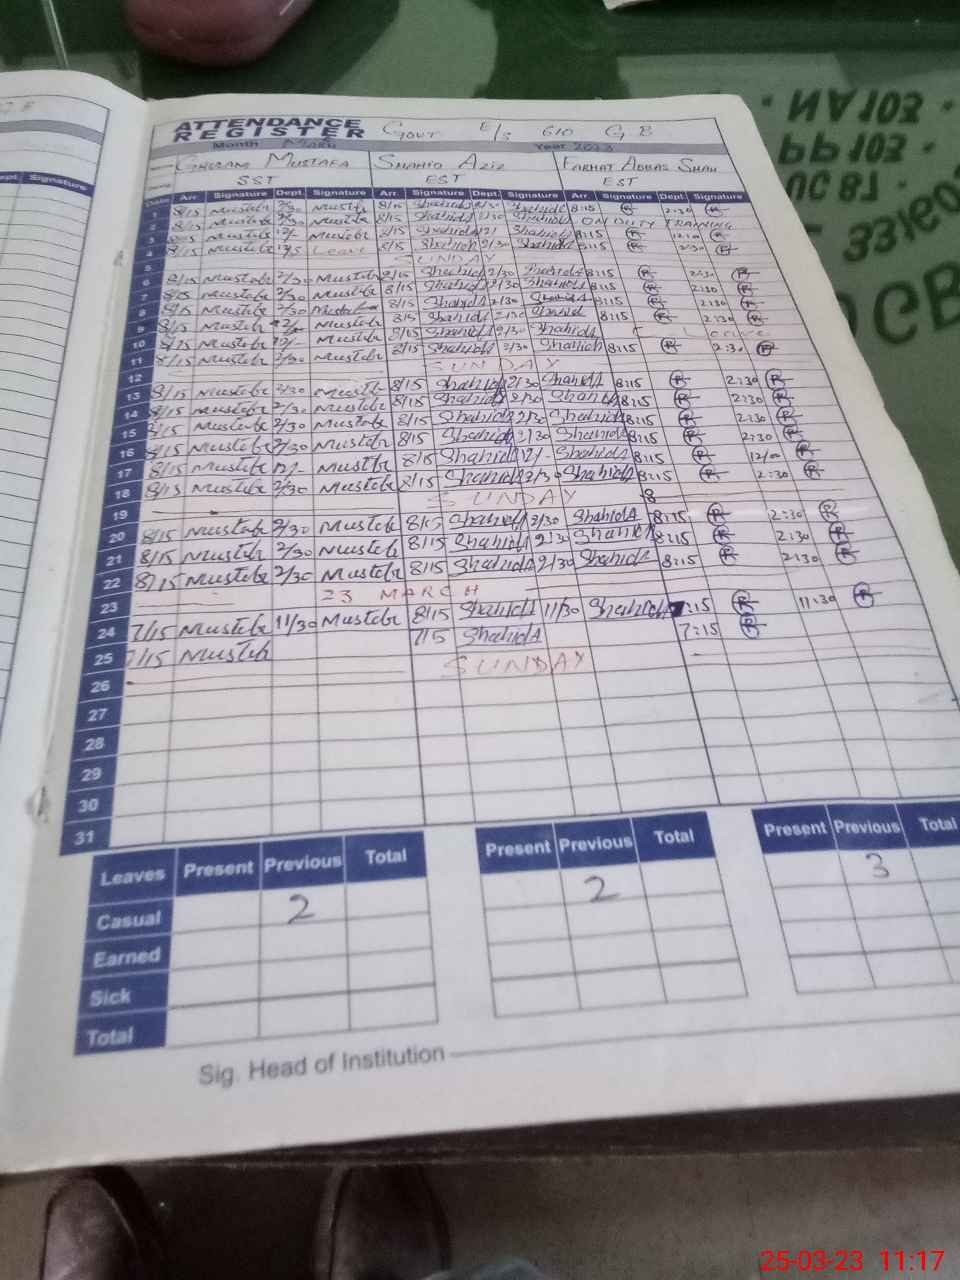 ATTENDANCE REGISTER Govt E/S 610 G.B
Month March Year 2023
Ghulam Mustafa Shahid Aziz Farhat Abbas Shah
SST EST EST
Date Arr. Signature Dept. Signature Arr. Signature Dept. Signature Arr. Signature Dept. Signature
1 8/15 Mustafa 2/30 Mustafa 8/15 Shahid 2/30 Shahid 8:15 2:30
2 8/15 Mustafa 2/30 Mustafa 8/15 Shahid 2/30 Shahid ON DUTY TRAINING
3 8/15 Mustafa 12/ Mustafa 8/15 Shahid 12/ Shahid 8:15 12:00
4 8/15 Mustafa Leave 8/15 Shahid 2/30 Shahid 8:15 2:30
5 SUNDAY
6 8/15 Mustafa 2/30 Mustafa 8/15 Shahid 2/30 Shahid 8:15 2:30
7 8/15 Mustafa 2/30 Mustafa 8/15 Shahid 2/30 Shahid 8:15 2:30
8 8/15 Mustafa 2/30 Mustafa 8/15 Shahid 2/30 Shahid 8:15 2:30
9 8/15 Mustafa 2/30 Mustafa 8/15 Shahid 2/30 Shahid 8:15 2:30
10 8/15 Mustafa 12/- Mustafa 8/15 Shahid Shahid Leave
11 8/15 Mustafa 2/30 Mustafa 8/15 Shahid 2/30 Shahid 8:15 2:30
12 SUNDAY
13 8/15 Mustafa 2/30 Mustafa 8/15 Shahid 2/30 Shahid 8:15 2:30
14 8/15 Mustafa 2/30 Mustafa 8/15 Shahid 2/30 Shahid 8:15 2:30
15 8/15 Mustafa 2/30 Mustafa 8/15 Shahid 2/30 Shahid 8:15 2:30
16 8/15 Mustafa 2/30 Mustafa 8/15 Shahid 2/30 Shahid 8:15 2:30
17 8/15 Mustafa 12/- Mustafa 8/15 Shahid 12/- Shahid 8:15 12/00
18 8/15 Mustafa 2/30 Mustafa 8/15 Shahid 2/30 Shahid 8:15 2:30
19 SUNDAY 8
20 8/15 Mustafa 2/30 Mustafa 8/15 Shahid 2/30 Shahid 8:15 2:30
21 8/15 Mustafa 2/30 Mustafa 8/15 Shahid 2/30 Shahid 8:15 2:30
22 8/15 Mustafa 2/30 Mustafa 8/15 Shahid 2/30 Shahid 8:15 2:30
23 23 MARCH
24 7/15 Mustafa 11/30 Mustafa 8/15 Shahid 11/30 Shahid 7:15 11:30
25 7/15 Mustafa 7/15 Shahid 7:15
26 SUNDAY
27
28
29
30
31
Leaves Present Previous Total Present Previous Total Present Previous Total
Casual 2 2 3
Earned
Sick
Total
Sig. Head of Institution
Signature
25-03-23 11:17